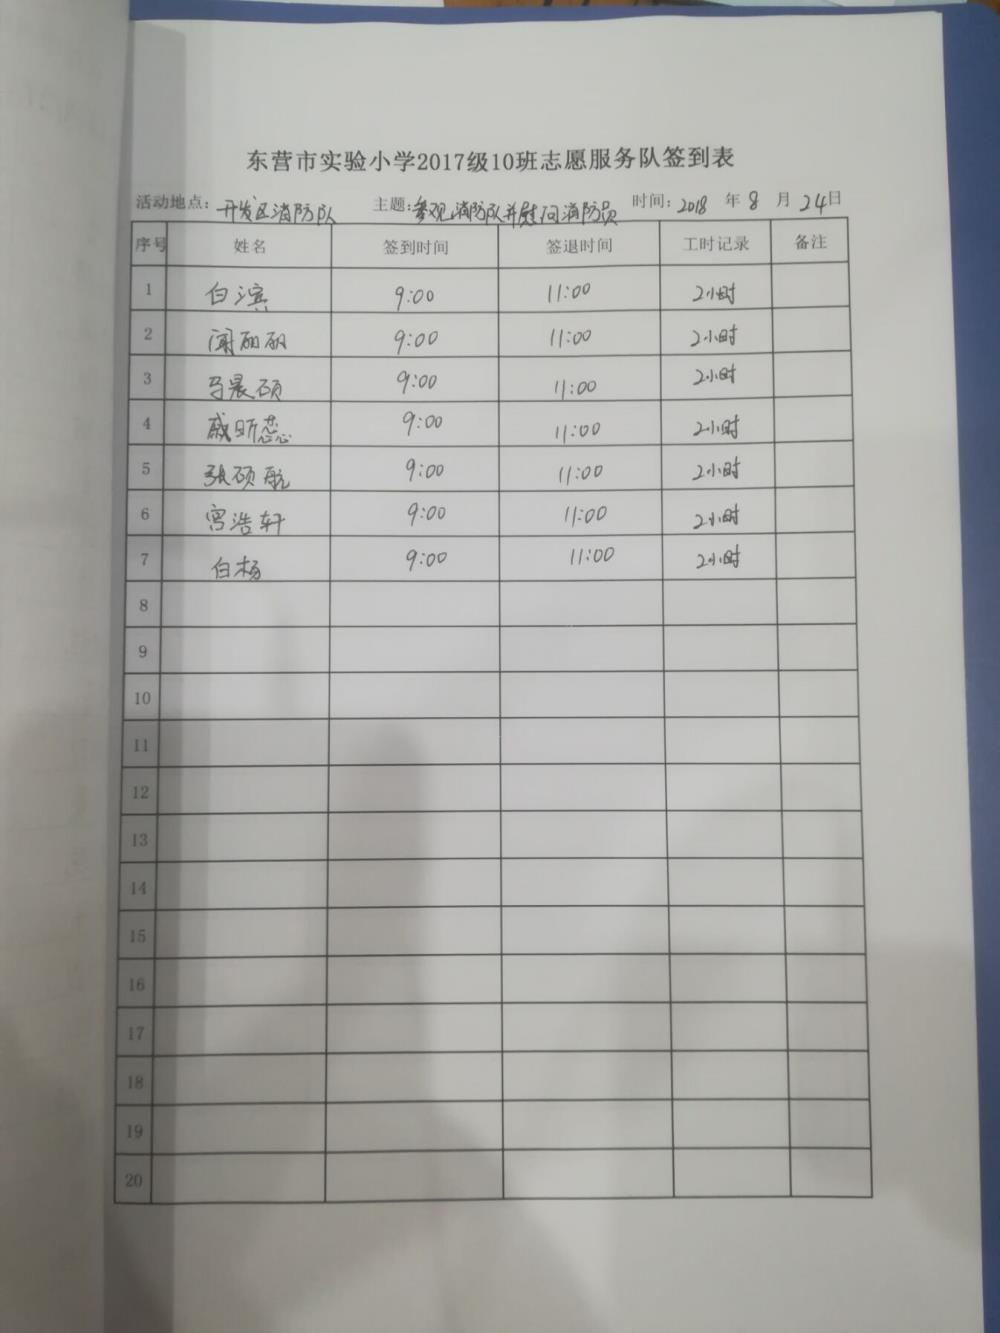 东营市实验小学2017级10班志愿服务队签到表
活动地点：开发区消防队 主题：参观消防队并慰问消防员 时间：2018 年 8 月 24日
序号 姓名 签到时间 签退时间 工时记录 备注
1 白滨 9:00 11:00 2小时
2 闻丽丽 9:00 11:00 2小时
3 马晨硕 9:00 11:00 2小时
4 戚昕蕊 9:00 11:00 2小时
5 张硕航 9:00 11:00 2小时
6 宫浩轩 9:00 11:00 2小时
7 白杨 9:00 11:00 2小时
8
9
10
11
12
13
14
15
16
17
18
19
20